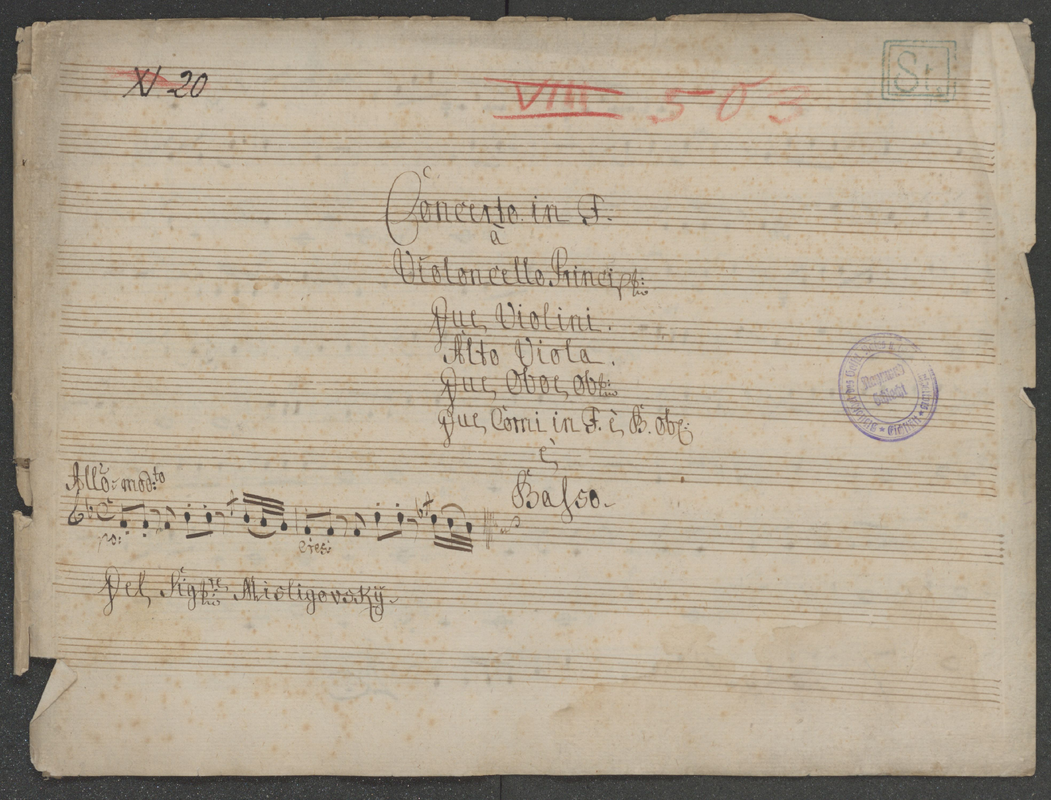 XI 20
VIIII 503
St.
Concerto in F.
à
Violoncello Princip
Due Violini.
Alto Viola.
Due Oboe, obl:
Due Corni in F. è B. obl:
è
Basso.
Allo: modto
po:
cres:
Del Sigre Misligovskÿ.